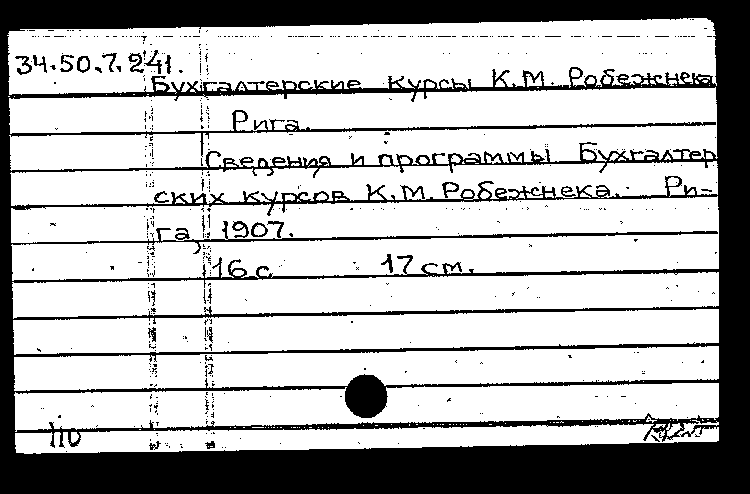 34.50.7.241.
Бухгалтерские курсы К.М. Робежнека
Рига.
Сведения и программы Бухгалтер
ских курсов К.М. Робежнека. Ри-
га, 1907.
16 с 17 см.
110